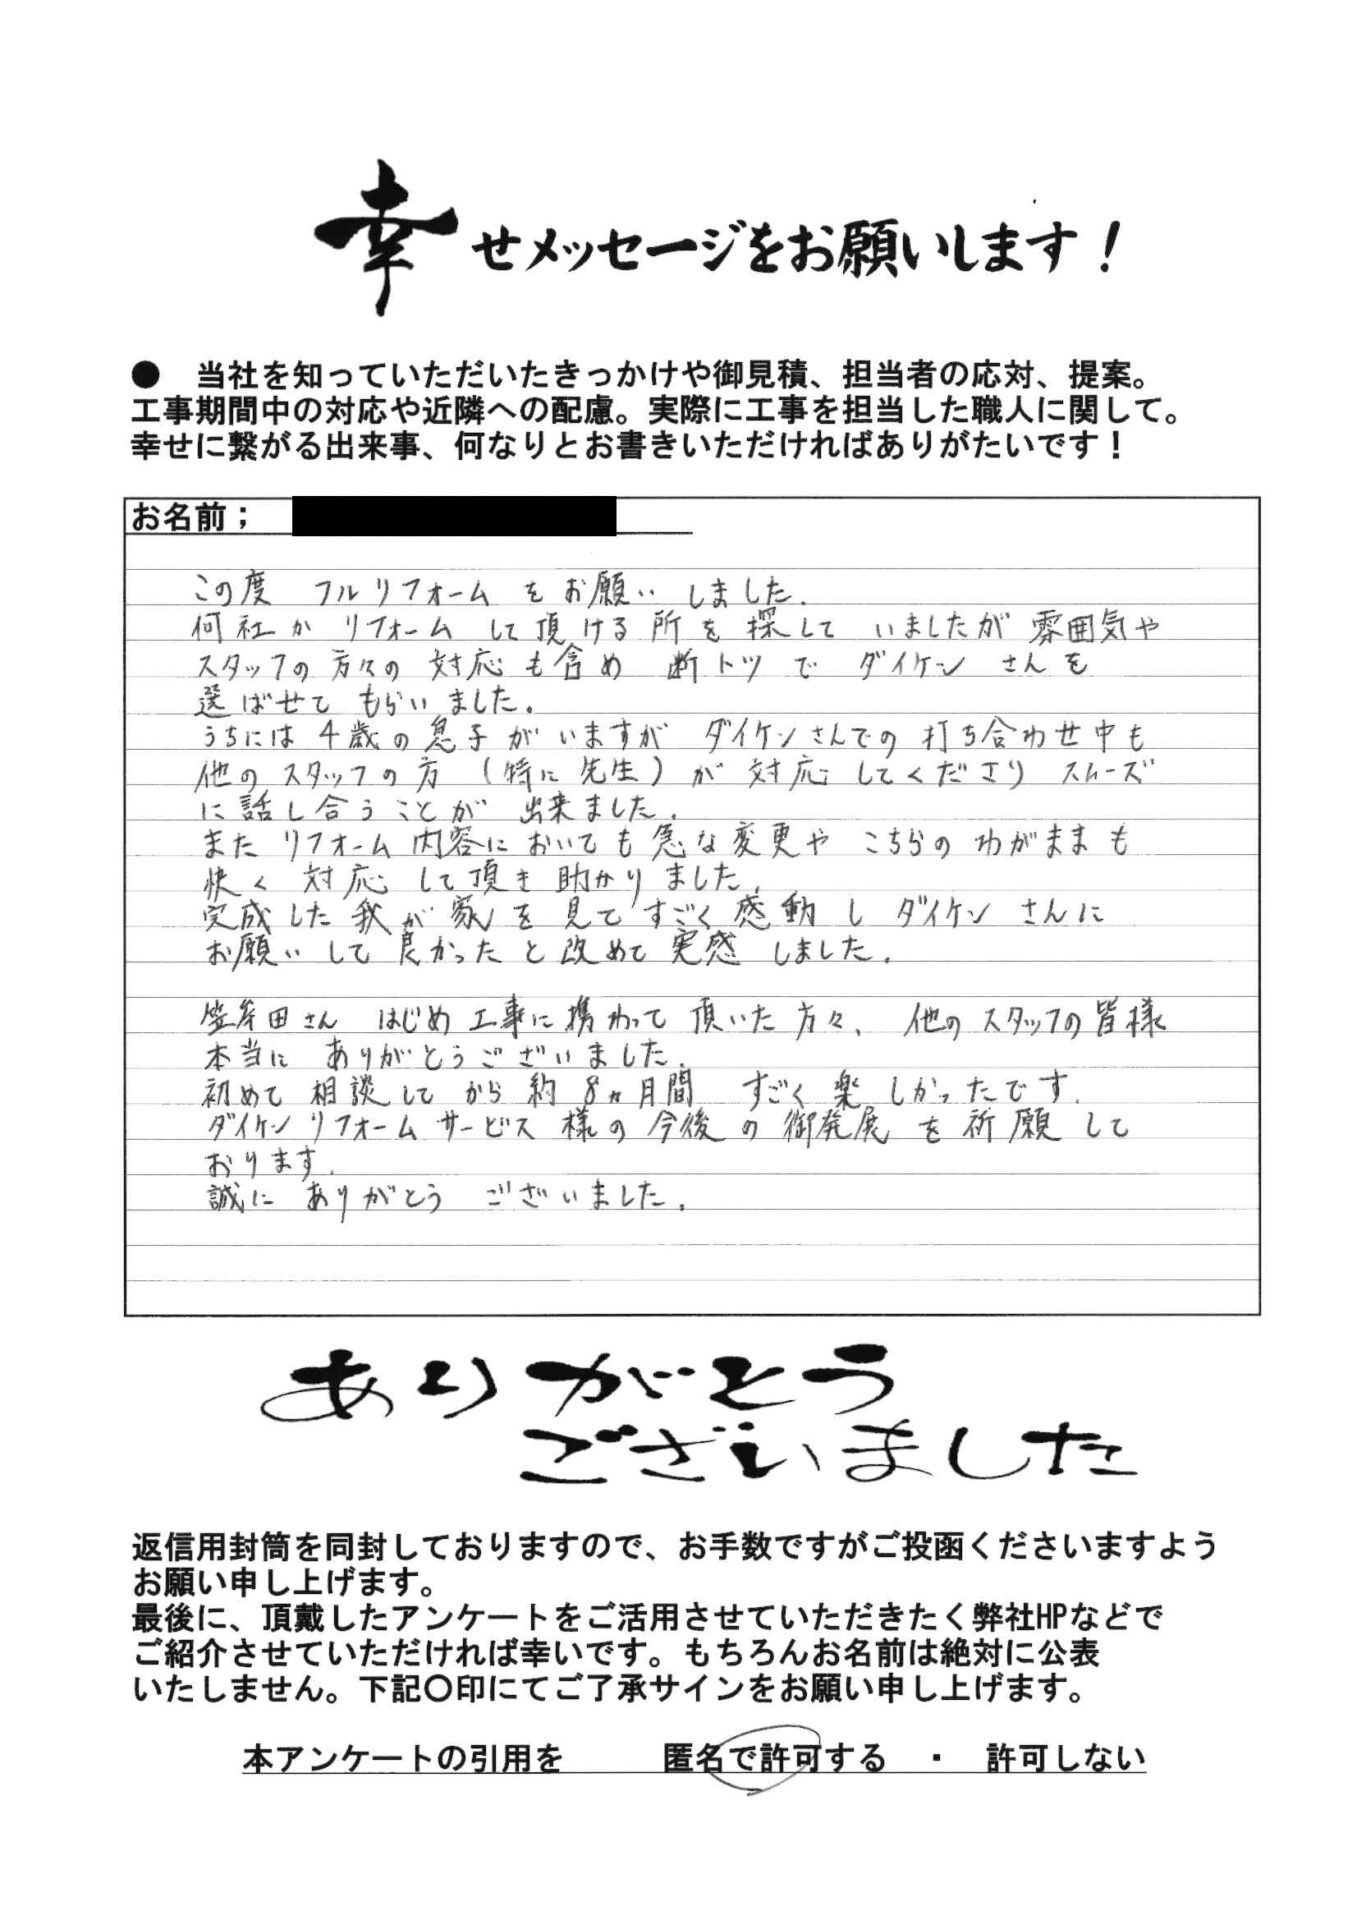 幸せメッセージをお願いします！
● 当社を知っていただいたきっかけや御見積、担当者の応対、提案。
工事期間中の対応や近隣への配慮。実際に工事を担当した職人に関して。
幸せに繋がる出来事、何なりとお書きいただければありがたいです！
お名前；
この度 フルリフォームをお願いしました。
何社かリフォームして頂ける所を探していましたが雰囲気や
スタッフの方々の対応も含め断トツでダイケンさんを
選ばせてもらいました。
うちには4歳の息子がいますがダイケンさんでの打ち合わせ中も
他のスタッフの方（特に先生）が対応してくださりスムーズ
に話し合うことが出来ました。
またリフォーム内容においても急な変更やこちらのわがままも
快く対応して頂き助かりました。
完成した我が家を見てすごく感動しダイケンさんに
お願いして良かったと改めて実感しました。
田さんはじめ工事に携わって頂いた方々、他のスタッフの皆様
本当にありがとうございました。
初めて相談してから約8ヵ月間 すごく楽しかったです。
ダイケンリフォームサービス様の今後の御発展を祈願して
おります。
誠にありがとうございました。
ありがとう
ございました
返信用封筒を同封しておりますので、お手数ですがご投函くださいますよう
お願い申し上げます。
最後に、頂戴したアンケートをご活用させていただきたく弊社HPなどで
ご紹介させていただければ幸いです。もちろんお名前は絶対に公表
いたしません。下記〇印にてご了承サインをお願い申し上げます。
本アンケートの引用を 匿名で許可する ・ 許可しない